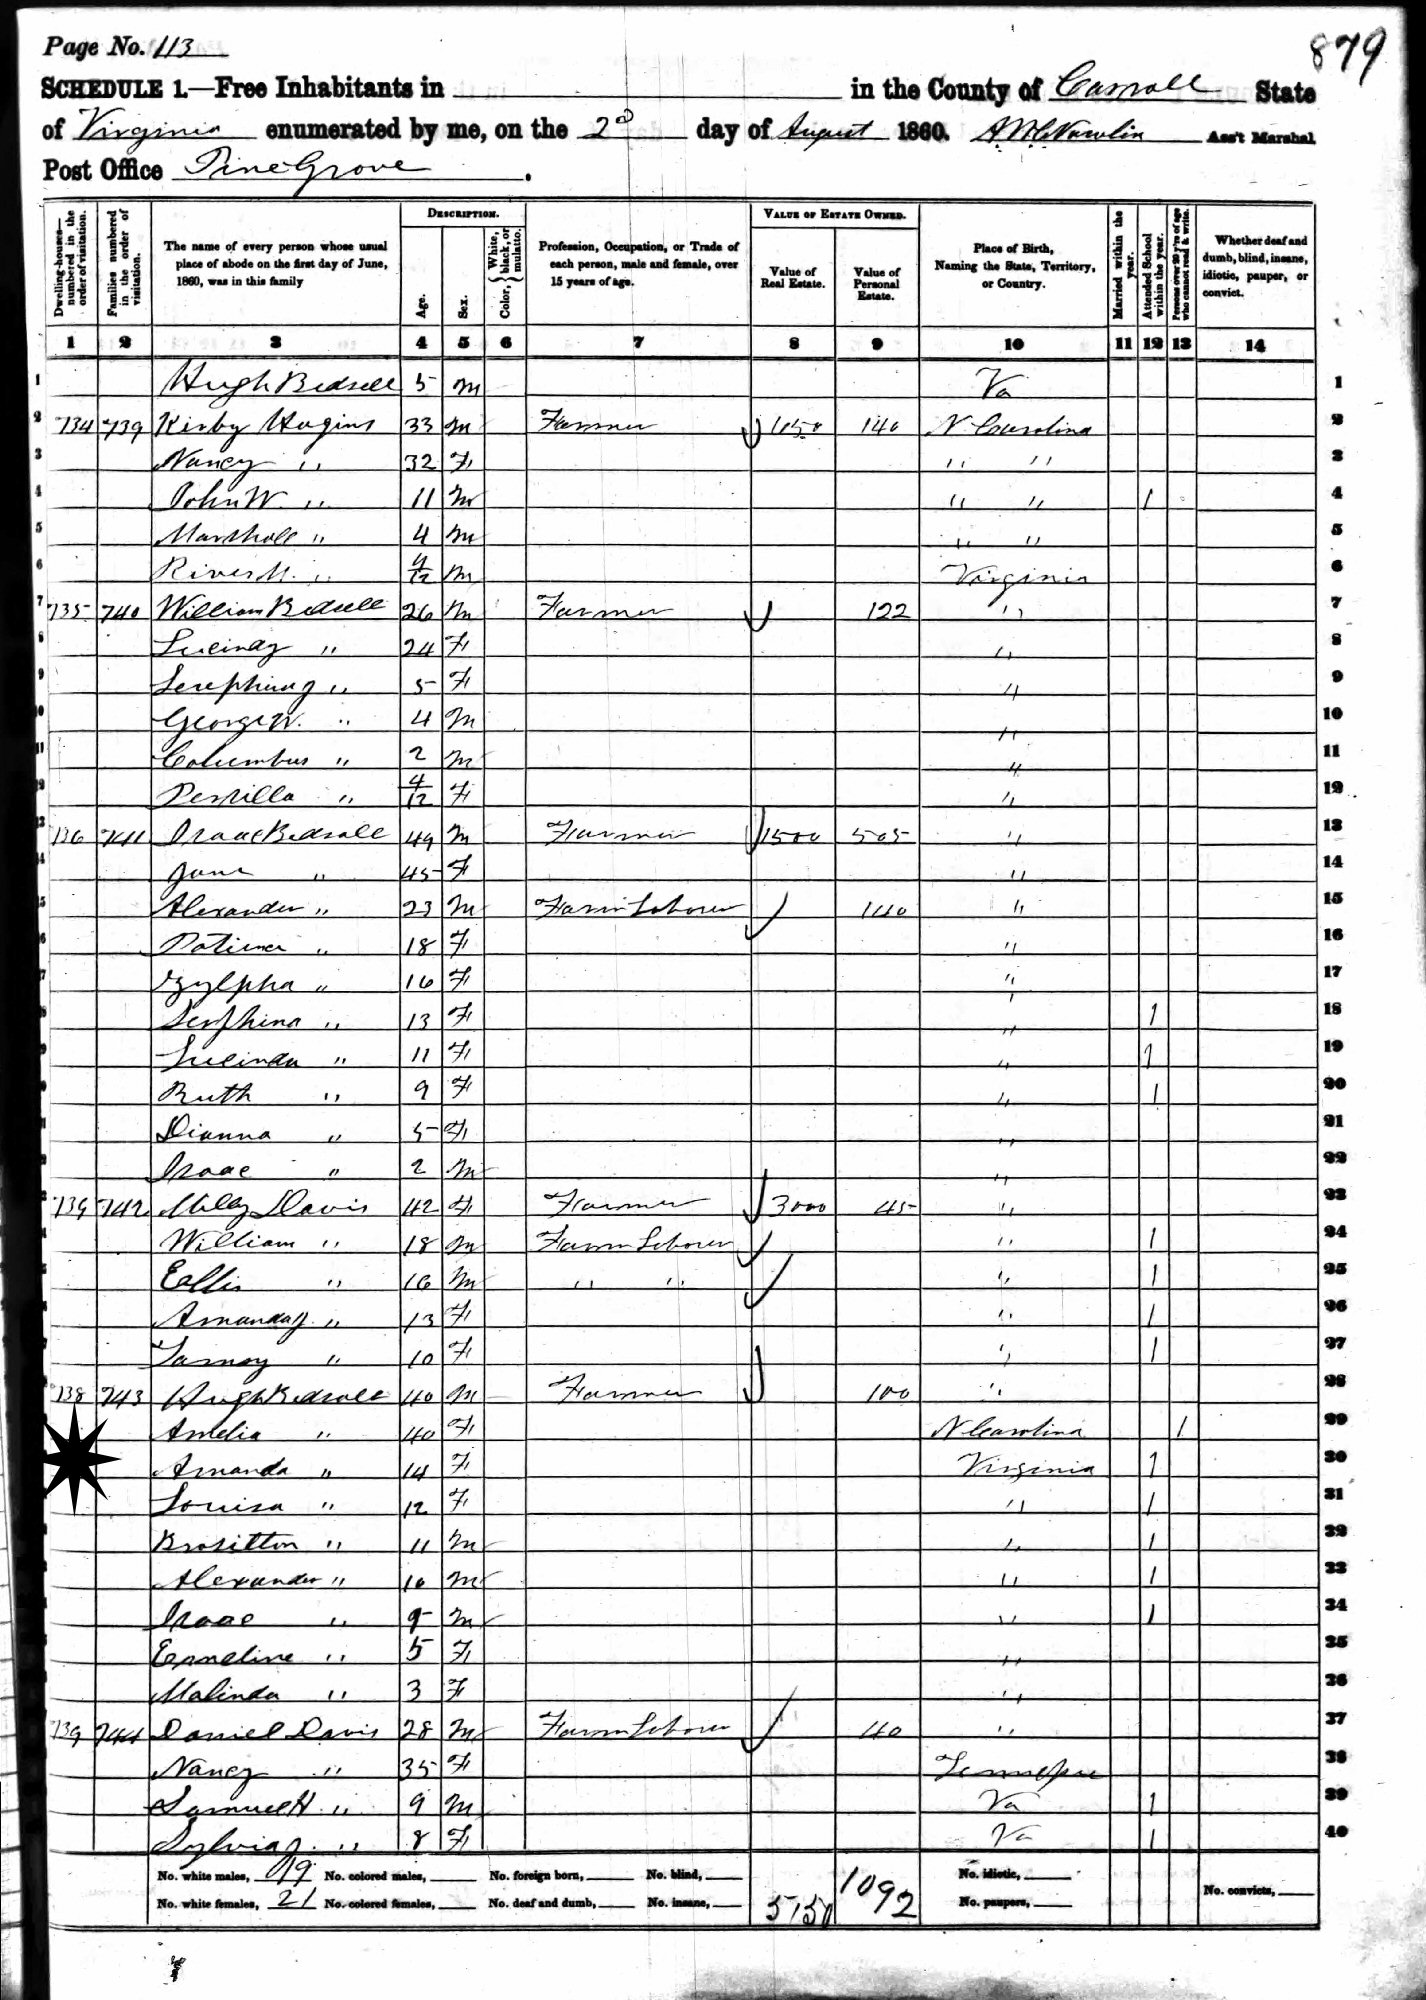 Page No. 113
879
SCHEDULE 1.—Free Inhabitants in in the County of Carroll State
of Virginia enumerated by me, on the 2d day of August 1860. Ass't Marshal
Post Office Pine Grove.
Dwelling-houses—numbered in the order of visitation. Families numbered in the order of visitation. The name of every person whose usual place of abode on the first day of June, 1860, was in this family DESCRIPTION. Age. Sex. Color, { White, black, or mulatto. Profession, Occupation, or Trade of each person, male and female, over 15 years of age. VALUE OF ESTATE OWNED. Value of Real Estate. Value of Personal Estate. Place of Birth, Naming the State, Territory, or Country. Married within the year. Attended School within the year. Persons over 20 y'rs of age who cannot read & write. Whether deaf and dumb, blind, insane, idiotic, pauper, or convict.
1 2 3 4 5 6 7 8 9 10 11 12 13 14
1 Hugh Bedsell 5 M Va 1
2 734 739 Kirby Hugins 33 M Farmer 650 140 N Carolina 2
3 Nancy " 32 F " " 3
4 John W. " 11 M " " 1 4
5 Marshall " 4 M " " 5
6 " 4/12 M Virginia 6
7 735 740 William Bedsell 26 M Farmer 122 " 7
8 Lucindy " 24 F " 8
9 " 5 F " 9
10 George W. " 4 M " 10
11 Columbus " 2 M " 11
12 " 4/12 F " 12
13 736 741 Isaac Bedsell 49 M Farmer 1500 505 " 13
14 Jane " 45 F " 14
15 Alexander " 23 M Farm Laborer 140 " 15
16 " 18 F " 16
17 Zylpha " 16 F " 17
18 Serphina " 13 F " 1 18
19 Lucinda " 11 F " 1 19
20 Ruth " 9 F " 1 20
21 Dianna " 5 F " 21
22 Isaac " 2 M " 22
23 739 742 Milly Davis 42 F Farmer 3000 45 " 23
24 William " 18 M Farm Laborer " 1 24
25 Ellis " 16 M " " " 1 25
26 Amanda J. " 13 F " 1 26
27 " 10 F " 1 27
28 738 743 Hugh Bedsell 40 M Farmer 100 " 28
Amelia " 40 F N Carolina 1 29
Amanda " 14 F Virginia 1 30
Louisa " 12 F " 1 31
" 11 M " 1 32
Alexander " 10 M " 1 33
Isaac " 9 M " 1 34
Emeline " 5 F " 35
Malinda " 3 F " 36
739 744 Daniel Davis 28 M Farm Laborer 40 " 37
Nancy " 35 F Tennessee 38
Samuel H. " 9 M Va 1 39
Sylvia J. " 8 F Va 1 40
No. white males, 19 No. colored males, No. foreign born, No. blind, 5150 1092 No. idiotic,
No. white females, 21 No. colored females, No. deaf and dumb, No. insane, No. paupers, No. convicts,